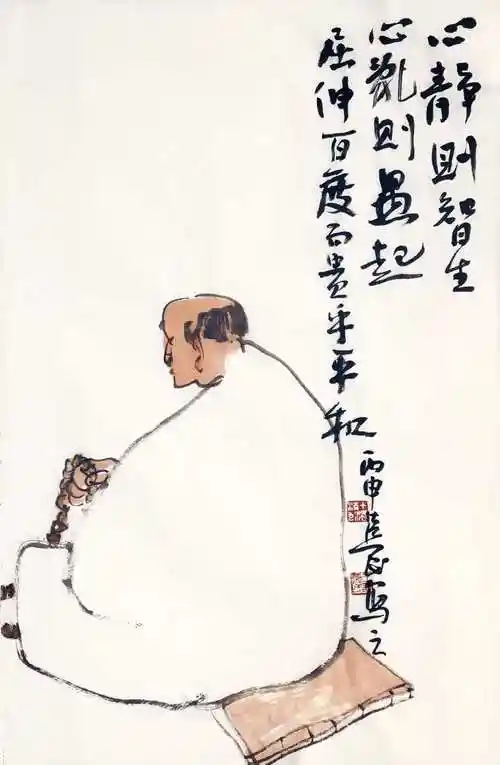 心静则智生
心亂则愚起
屈伸百度而贵乎平和
丙申写之